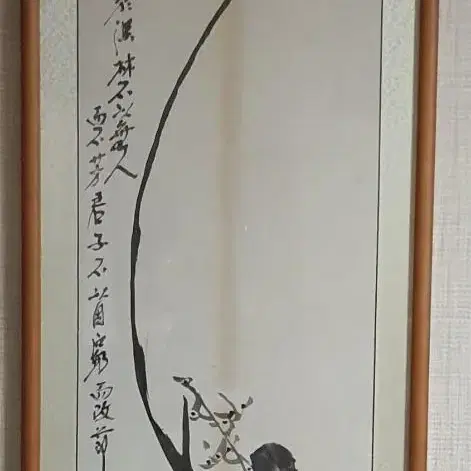 於深林不以無人
而不芳君子不以困窮而改節